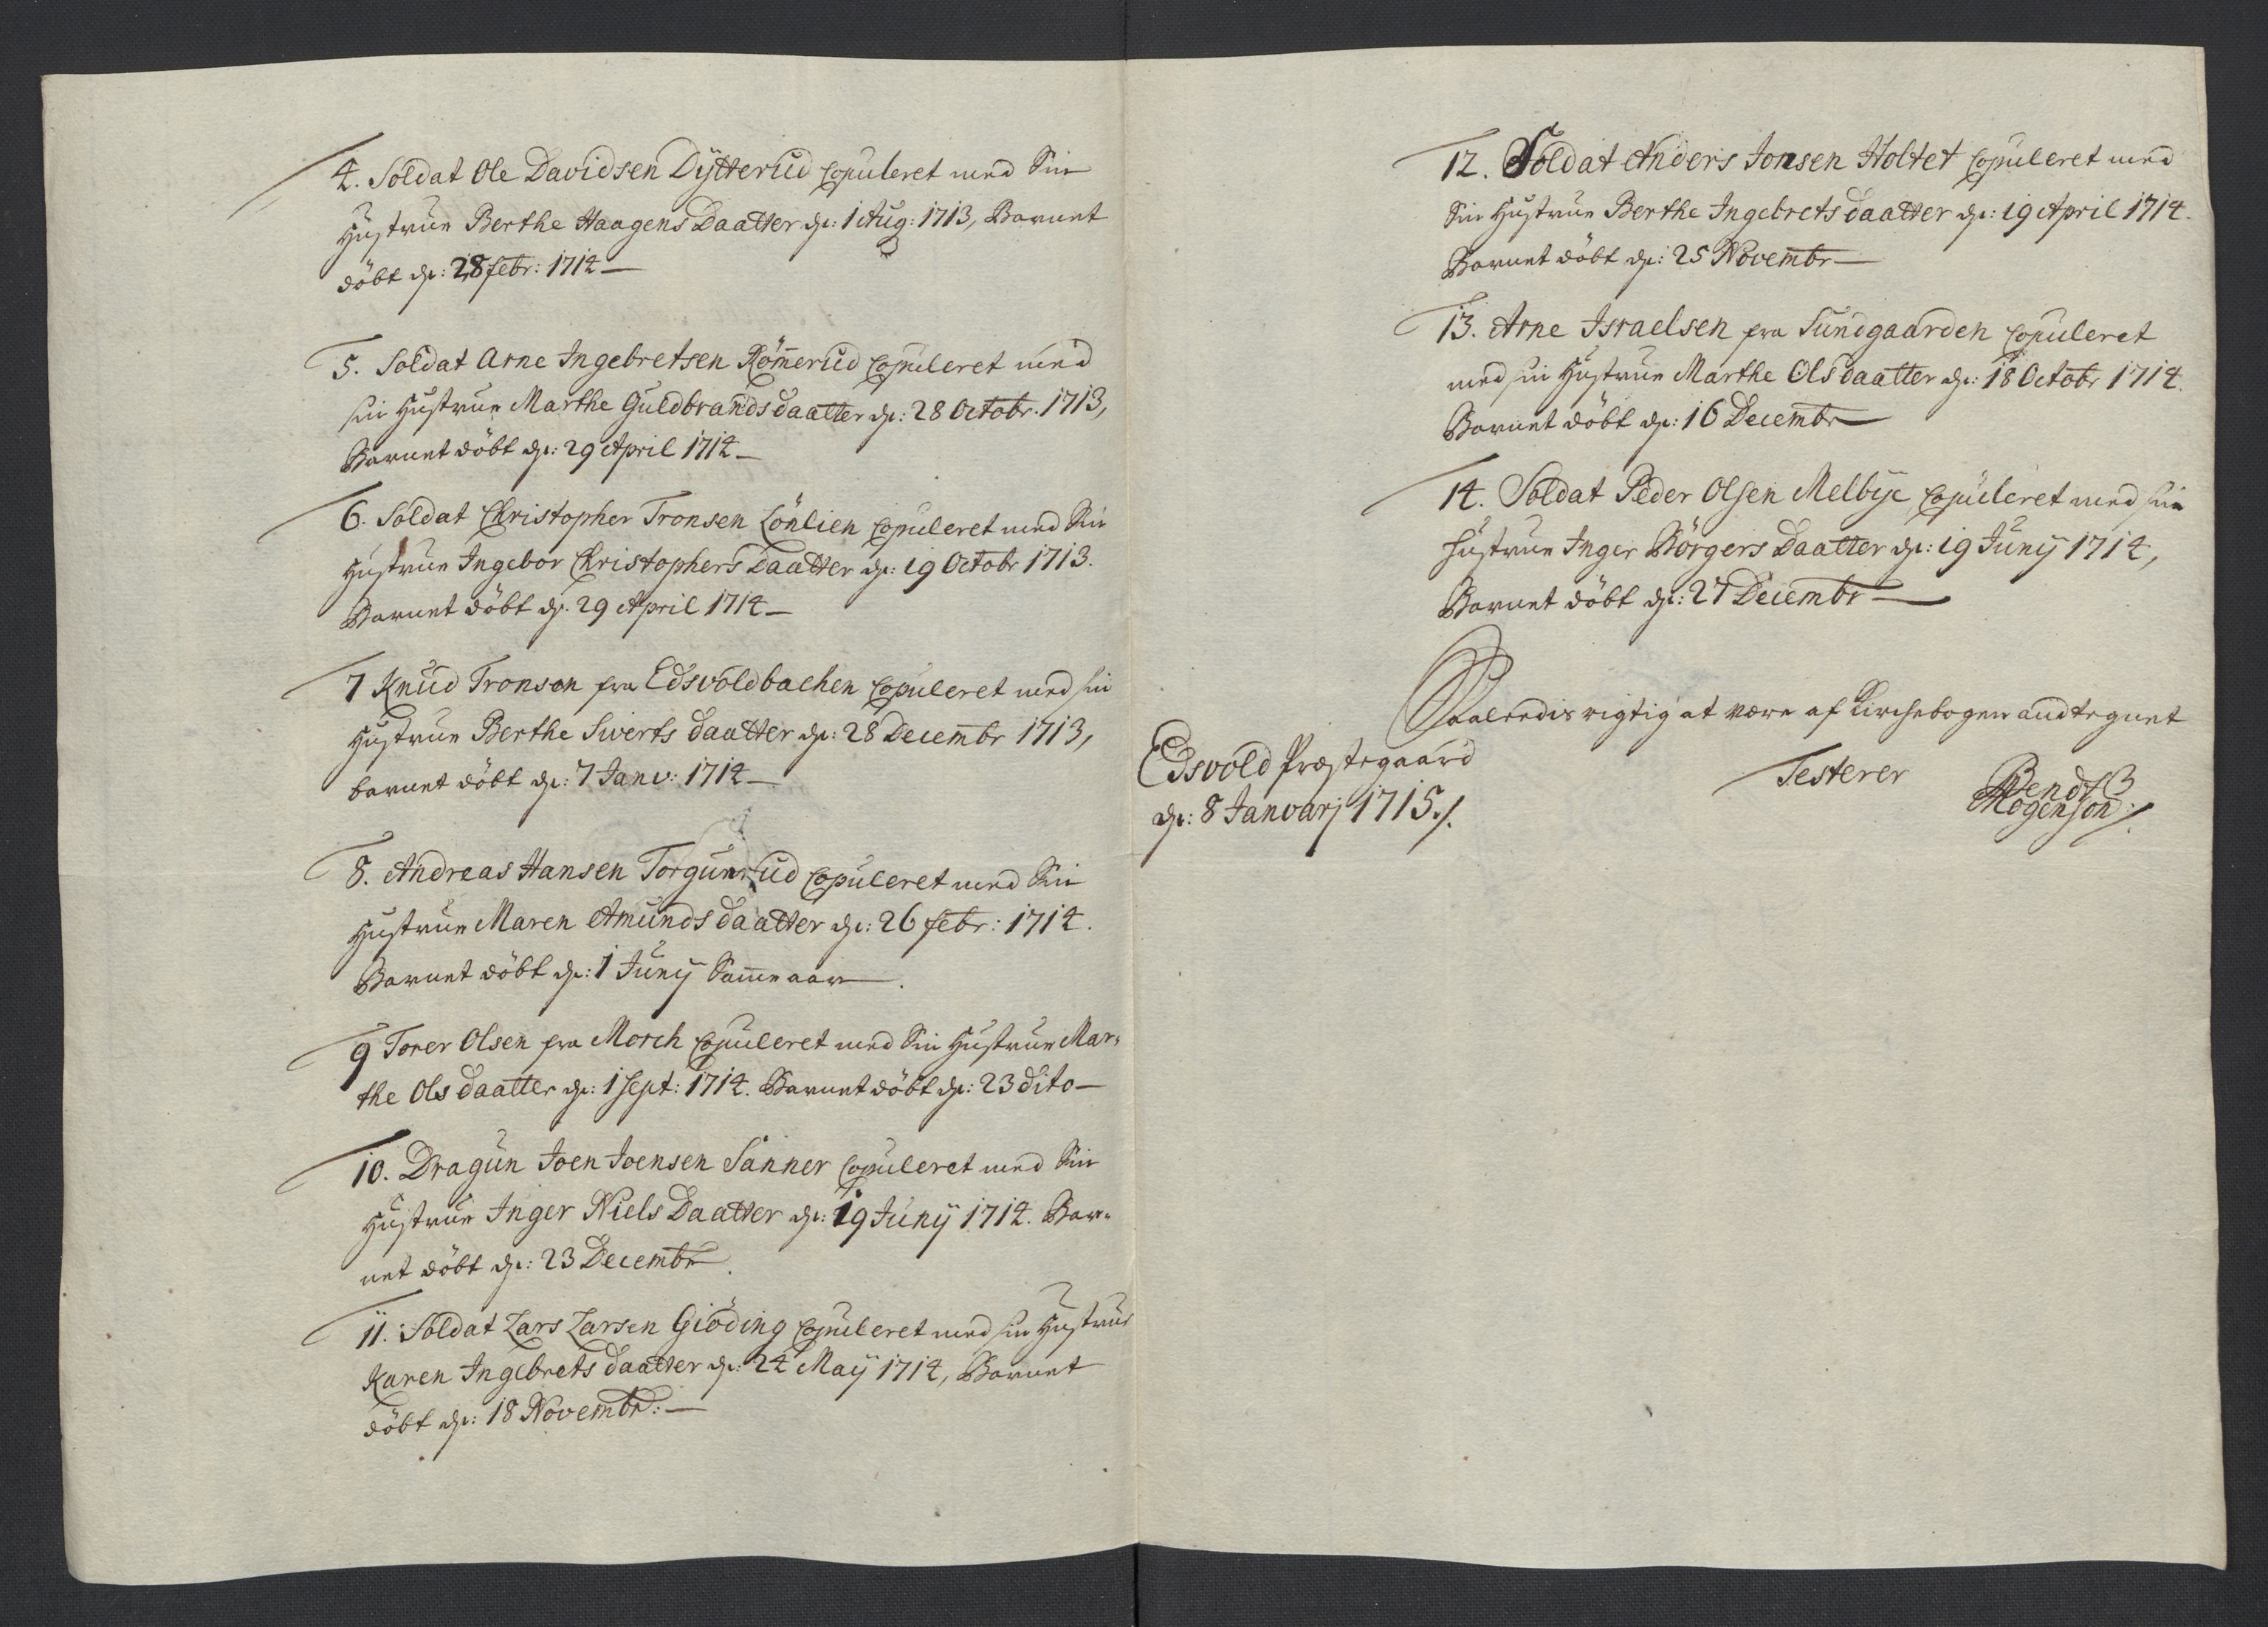 4. Soldat Ole Davidsen Dÿtterud Copuleret med Sin
Hustrue Berthe Haagens Daatter dn: 1 Aug: 1713, Barnet
döbt dn: 28 febr: 1714
5. Soldat Arne Ingebretsen Römerud Copuleret med
sin Hustrue Marthe Guldbrands daatter dn: 28 Octobr. 1713,
Barnet döbt dn: 29 April 1714
6. Soldat Christopher Tronsen Lönlien Copuleret med Sin
Hustrue Ingebor Christophers Daatter dn: 19 Octobr 1713.
Barnet döbt dn. 29 April 1714
7 Knud Tronson fra Edsvoldbachen Copuleret med sin
Hustrue Berthe Siverts daatter dn: 28 Decembr 1713,
barnet döbt dn: 7 Janv: 1714
8. Andreas Hansen Torgunrud Copuleret med Sin
Hustrue Maren Amunds daatter dn: 26 febr: 1714.
Barnet döbt dn: 1 Junÿ Samme aar.
9 Torer Olsen fra Morch Copuleret med Sin Hustrue Mar-
the Ols daatter dn: 1 Sept: 1714. Barnet döbt dn: 23 dito
10. Dragun Joen Joensen Sanner Copuleret med Sin
Hustrue Inger Niels Daatter dn: 19 Junÿ 1714. Bar-
net döbt dn: 23 Decembr.
11. Soldat Lars Larsen Giöding Copuleret med sin Hustrue
Karen Ingebrets daatter dn: 24 Maÿ 1714, Barnet
döbt dn: 18 Novembr:
12. Soldat Anders Jonsen Holtet Copuleret med
Sin Hustrue Berthe Ingebrets daatter dn: 19 April 1714.
Barnet döbt dn: 25 Novembr
13. Arne Israelsen fra Sundgaarden Copuleret
med sin Hustrue Marthe Ols daatter dn: 18 Octobr 1714.
Barnet döbt dn: 16 Decembr
14. Soldat Peder Olsen Melbÿe Copuleret med sin
Hustrue Inger Börgers Daatter dn: 19 Junÿ 1714,
Barnet döbt dn: 27 Decembr
Saaledis rigtig at være af Kirchebogen andtegnet
Edsvold Præstegaard
dn: 8 Janvarj 1715 ./.
Testerer
Bendt
Mogenson